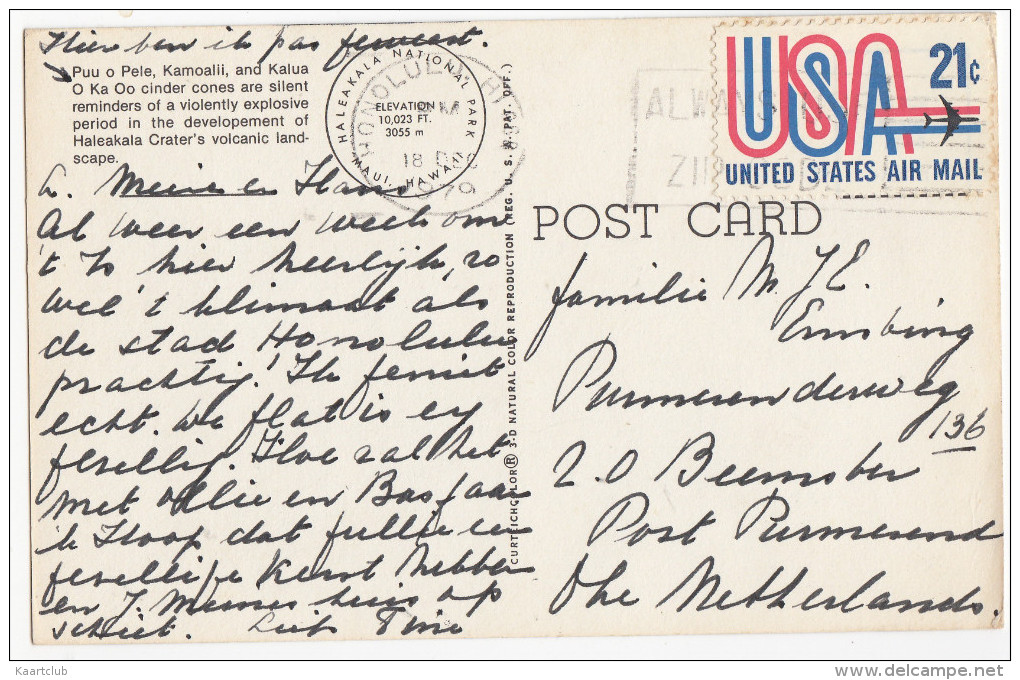 Hier ben ik pas geweest.
Puu o Pele, Kamoalii, and Kalua
O Ka Oo cinder cones are silent
reminders of a violently explosive
period in the developement of
Haleakala Crater's volcanic land-
scape.
HALEAKALA NATIONAL PARK
ELEVATION
10,023 FT.
3055 m
MAUI, HAWAII
HONOLULU, HI
PM
18 DEC
1979
ALWAYS USE
ZIP CODE
USA 21c
UNITED STATES AIR MAIL
L. en Hans
Al weer een week om
't Is hier heerlijk, zo
wel 't klimaat als
de stad Honolulu
prachtig! Ik geniet
echt. De flat is erg
gezellig. Hoe zal het
met Ollie en Bas gaan
ik Hoop dat jullie een
gezellige Kerst hebben
en J. huis op
schiet. Liefs Tine
CURTEICHCOLOR® 3-D NATURAL COLOR REPRODUCTION (REG. U. S. A. PAT. OFF.)
POST CARD
familie M. J. E.
Purmerenderweg
136
Z.O Beemster
Post Purmerend
The Netherlands.
Kaartclub
www.delcampe.net